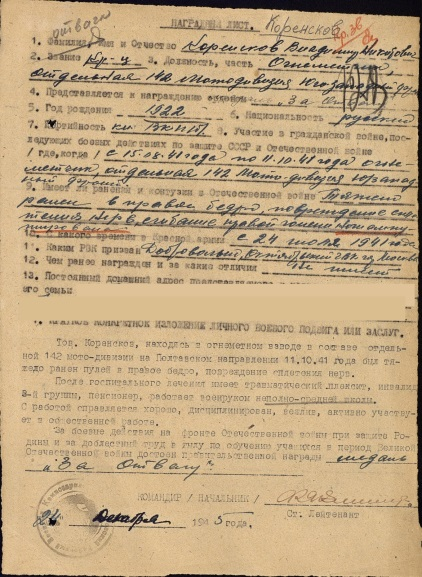 отвага
НАГРАДНОЙ ЛИСТ. Коренсков
1. Фамилия, имя и Отчество Коренсков Владимир
2. Звание Кр-ц 3. Должность, часть Огнеметчик,
отдельная 142 мотодивизия Юго-Западн.
4. Представляется к награждению орденом "За
5. Год рождения 1922 6. Национальность русский
7. Партийность кан. ВКП(б). 8. Участие в гражданской войне, пос-
ледующих боевых действиях по защите СССР и Отечественной войне
(где, когда) с 15.08.41 года по 11.10.41 года огне-
метчик, отдельная 142 Мото-дивизия
9. Имеет ли ранения и контузии в Отечественной войне Тяжело
ранен в правое бедро, повреждение
нерв, правой
10. С какого времени в Красной армии с 24 июля 1941 года
11. Каким РВК призван Добровольно, Октябрьский г. Москва
12. Чем ранее награжден и за какие отличия Не имеет
13. Постоянный домашний адрес представляемого к
его семьи
КРАТКОЕ КОНКРЕТНОЕ ИЗЛОЖЕНИЕ ЛИЧНОГО ВОЕННОГО ПОДВИГА ИЛИ ЗАСЛУГ.
Тов. Коренсков, находясь в огнеметном взводе в составе отдель-
ной 142 мото-дивизии на Полтавском направлении 11.10.41 года был тя-
жело ранен пулей в правое бедро, повреждение сплетения нерв.
После госпитального лечения имеет травматический плексит, инвалид
3-й группы, пенсионер, работает военруком неполно-средней школы.
С работой справляется хорошо, дисциплинирован, вежлив, активно участву-
ет в общественной работе.
За боевые действия на фронте Отечественной войны при защите Ро-
дины и за доблестный труд в тылу по обучению учащихся в период Великой
Отечественной войны достоин правительственной награды медаль
"За отвагу"
КОМАНДИР / НАЧАЛЬНИК /
Ст. Лейтенант
24 Декабря 1945 года.